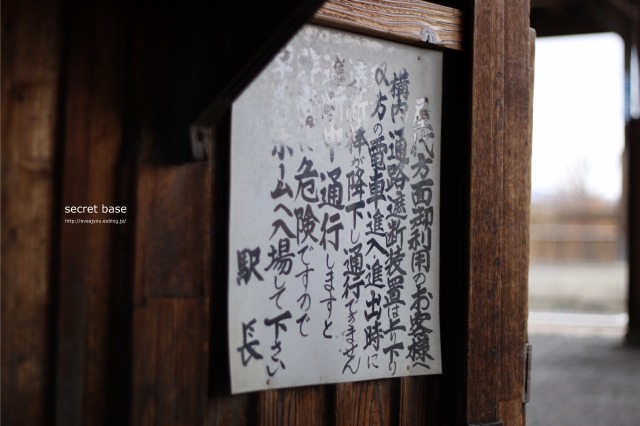 屋代方面御利用のお客様へ
構内通路遮断装置は上り下り
の方の電車進入、進出時に
遮断桿が降下し通行できません
中通行しますと
危険ですので
ホームへ入場して下さい
駅長
secret base
http://eveajyou.exblog.jp/